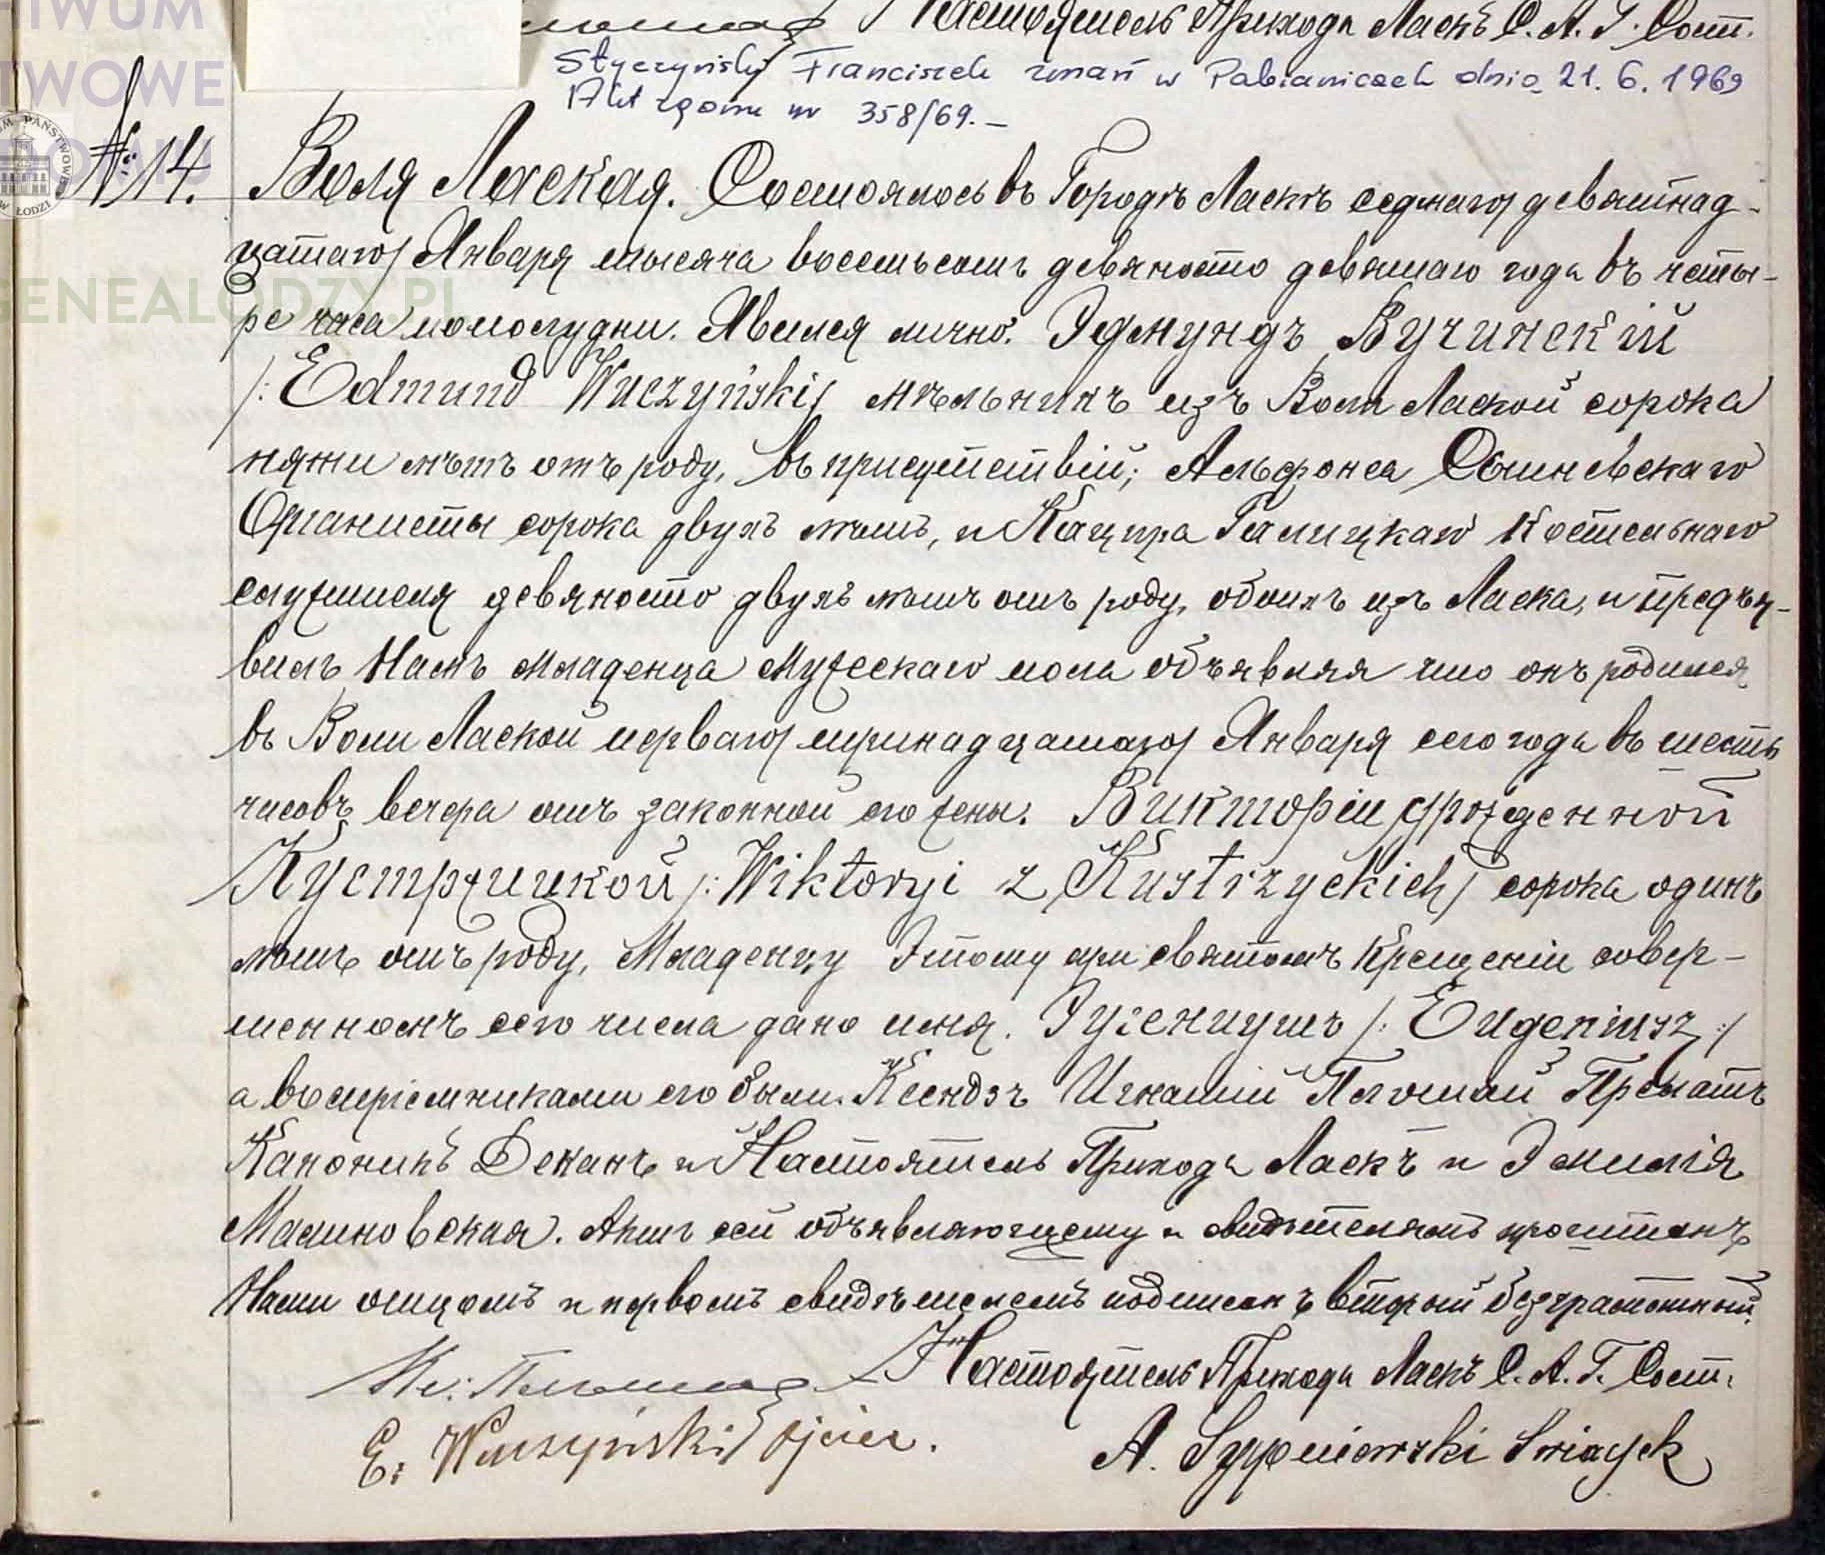 HIWUM
TWOWE
GENEALODZY.PL
Настоятель Прихода Ласкъ С. А. Г. Сост.
Styczyński Franciszek zmarł w Pabianicach dnia 21. 6. 1969
Akt zgonu nr 358/69. –
№ 14. Воля Лаская. Состоялось въ Городѣ Ласкѣ седмаго/девятнад-
цатаго/ Января тысяча восемьсотъ девяносто девятаго года въ четы-
ре часа пополудни. Явился лично: Эдмундъ Вучинскій
/: Edmund Wuczyński/ мѣльникъ изъ Воли Лаской сорока
пяти лѣтъ отъ роду, въ присутствіи; Альфонса
Органисты сорока двухъ лѣтъ, и Кацпра Галицкаго Костельнаго
служителя девяносто двухъ лѣтъ отъ роду, обоихъ изъ Ласка, и предъя-
вилъ Намъ младенца мужескаго пола объявляя что онъ родился
въ Воли Лаской перваго/тринадцатаго/ Января сего года въ шесть
часовъ вечера отъ законной его жены. Викторіи урожденной
Кустржицкой /: Wiktoryi z Kustrzyckich/ сорока одинъ
лѣтъ отъ роду, Младенцу Этому при святомъ Крещеніи совер-
шенномъ сего числа дано имя. Эугеніушъ /: Eugeniusz :/
а воспріемниками его были. Ксендзъ Игнатій Прелатъ
Каноникъ Деканъ и Настоятель Прихода Ласкъ и Эмилія
Малиновская. Актъ сей объявляющему и свидѣтелямъ прочитанъ
Нами отцомъ и первымъ свидѣтелемъ подписанъ второй безграмотный.
Настоятель Прихода Ласкъ С. А. Г. Сост.
E. Wuczyński Ojciec.
A. Sypniewski Swiadek